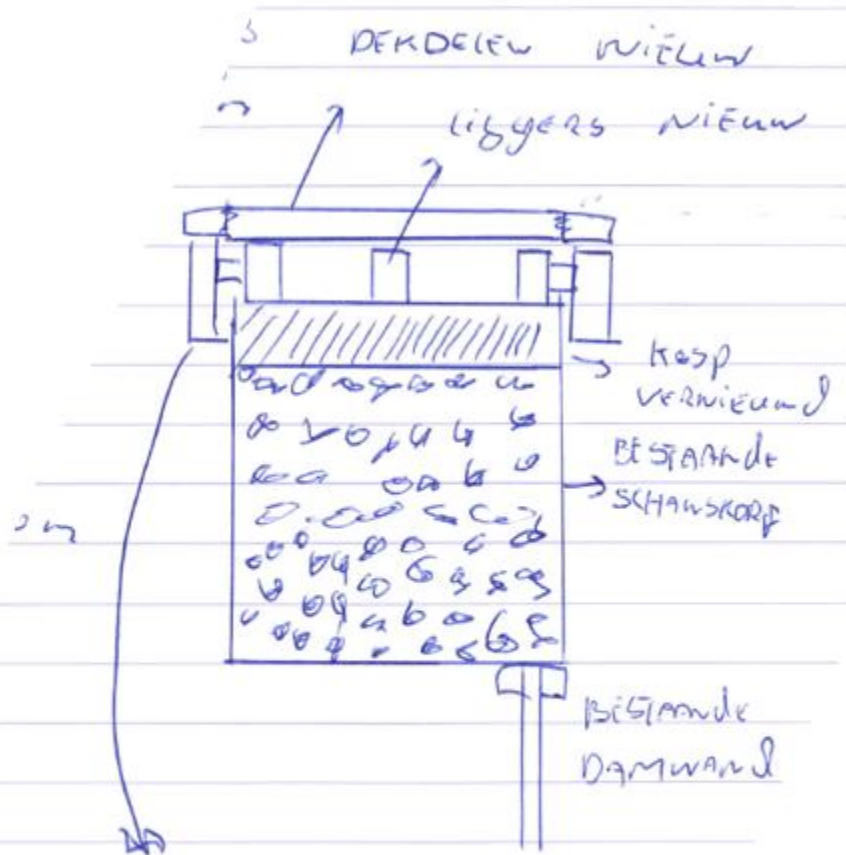 DEKDELEN NIEUW
liggers NIEUW
Kesp
VERNIEUWD
BESTAANDE
SCHANSKORF
m
BESTAANDE
DAMWAND